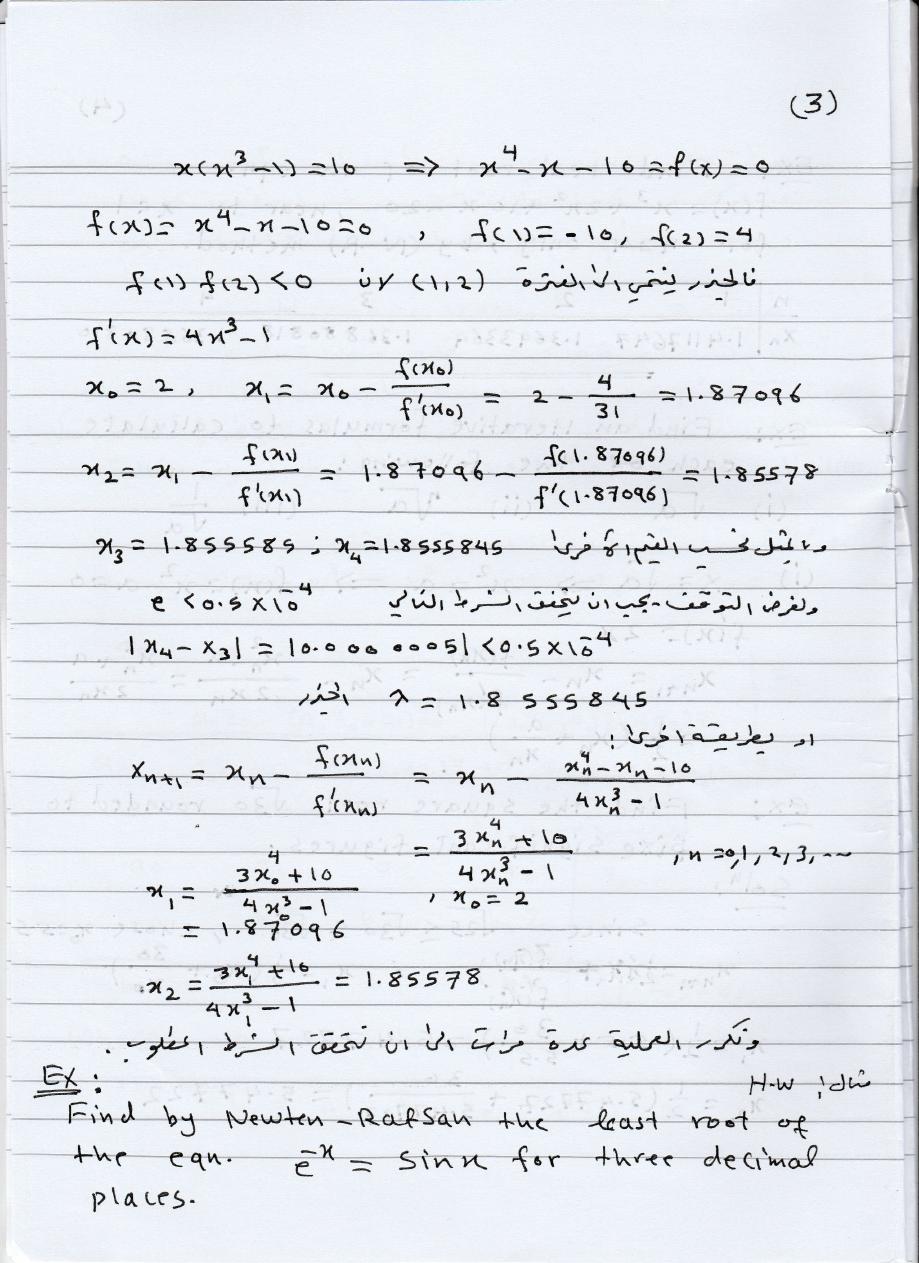 (3)
x(x³-1)=10 => x⁴-x-10=f(x)=0
f(x)=x⁴-x-10=0 , f(1)=-10, f(2)=4
فالجذر ينتمي الى الفترة (1,2) لان f(1) f(2) <0
f'(x)=4x³-1
x₀=2, x₁=x₀-f(x₀)/f'(x₀)=2-4/31=1.87096
x₂=x₁-f(x₁)/f'(x₁)=1.87096-f(1.87096)/f'(1.87096)=1.85578
وبالمثل نحسب القيم الأخرى x₃=1.855585 ; x₄=1.8555845
ولغرض التوقف يجب ان يتحقق الشرط التالي e<0.5×10⁻⁴
|x₄-x₃|=|0.0000005|<0.5×10⁻⁴
الجذر λ=1.8555845
او بطريقة اخرى:
xₙ₊₁=xₙ-f(xₙ)/f'(xₙ)=xₙ-(xₙ⁴-xₙ-10)/(4xₙ³-1)
=(3xₙ⁴+10)/(4xₙ³-1) , n=0,1,2,3,...
x₁=(3x₀⁴+10)/(4x₀³-1) , x₀=2
=1.87096
x₂=(3x₁⁴+10)/(4x₁³-1)=1.85578
ونكرر العملية عدة مرات الى ان نتحقق الشرط المطلوب.
Ex: مثال: H.W
Find by Newten-Rafsan the least root of
the eqn. e⁻ˣ = sinx for three decimal
places.